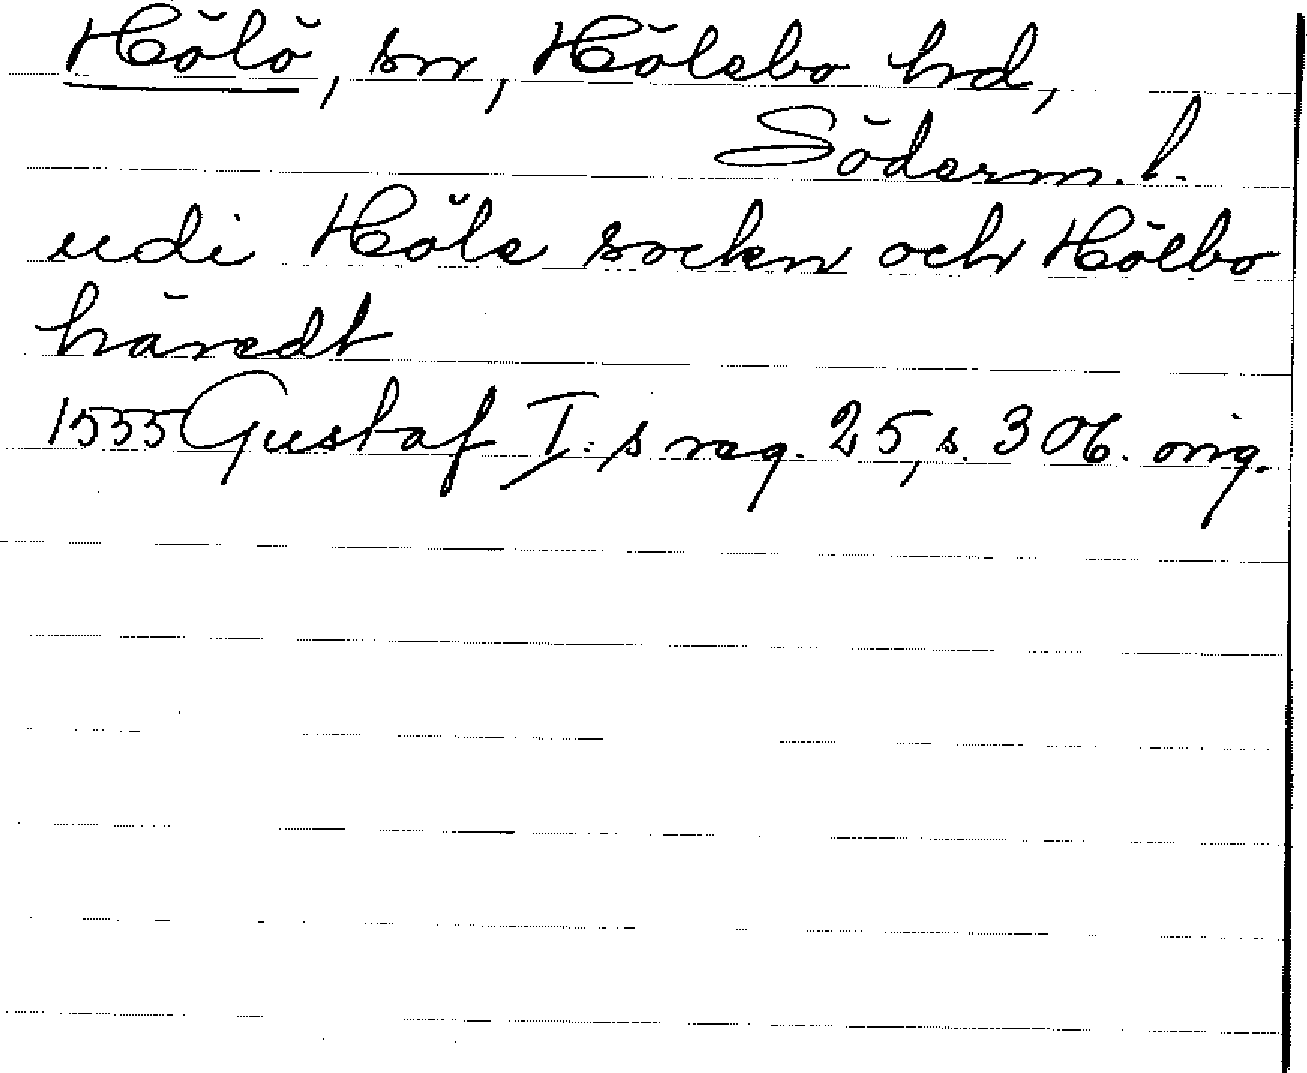 Hölö, sn, Hölebo hd,
Söderm. l.
udi Höle sockn och Hölbo
häredt
1555 Gustaf I:s reg. 25, s. 306. orig.